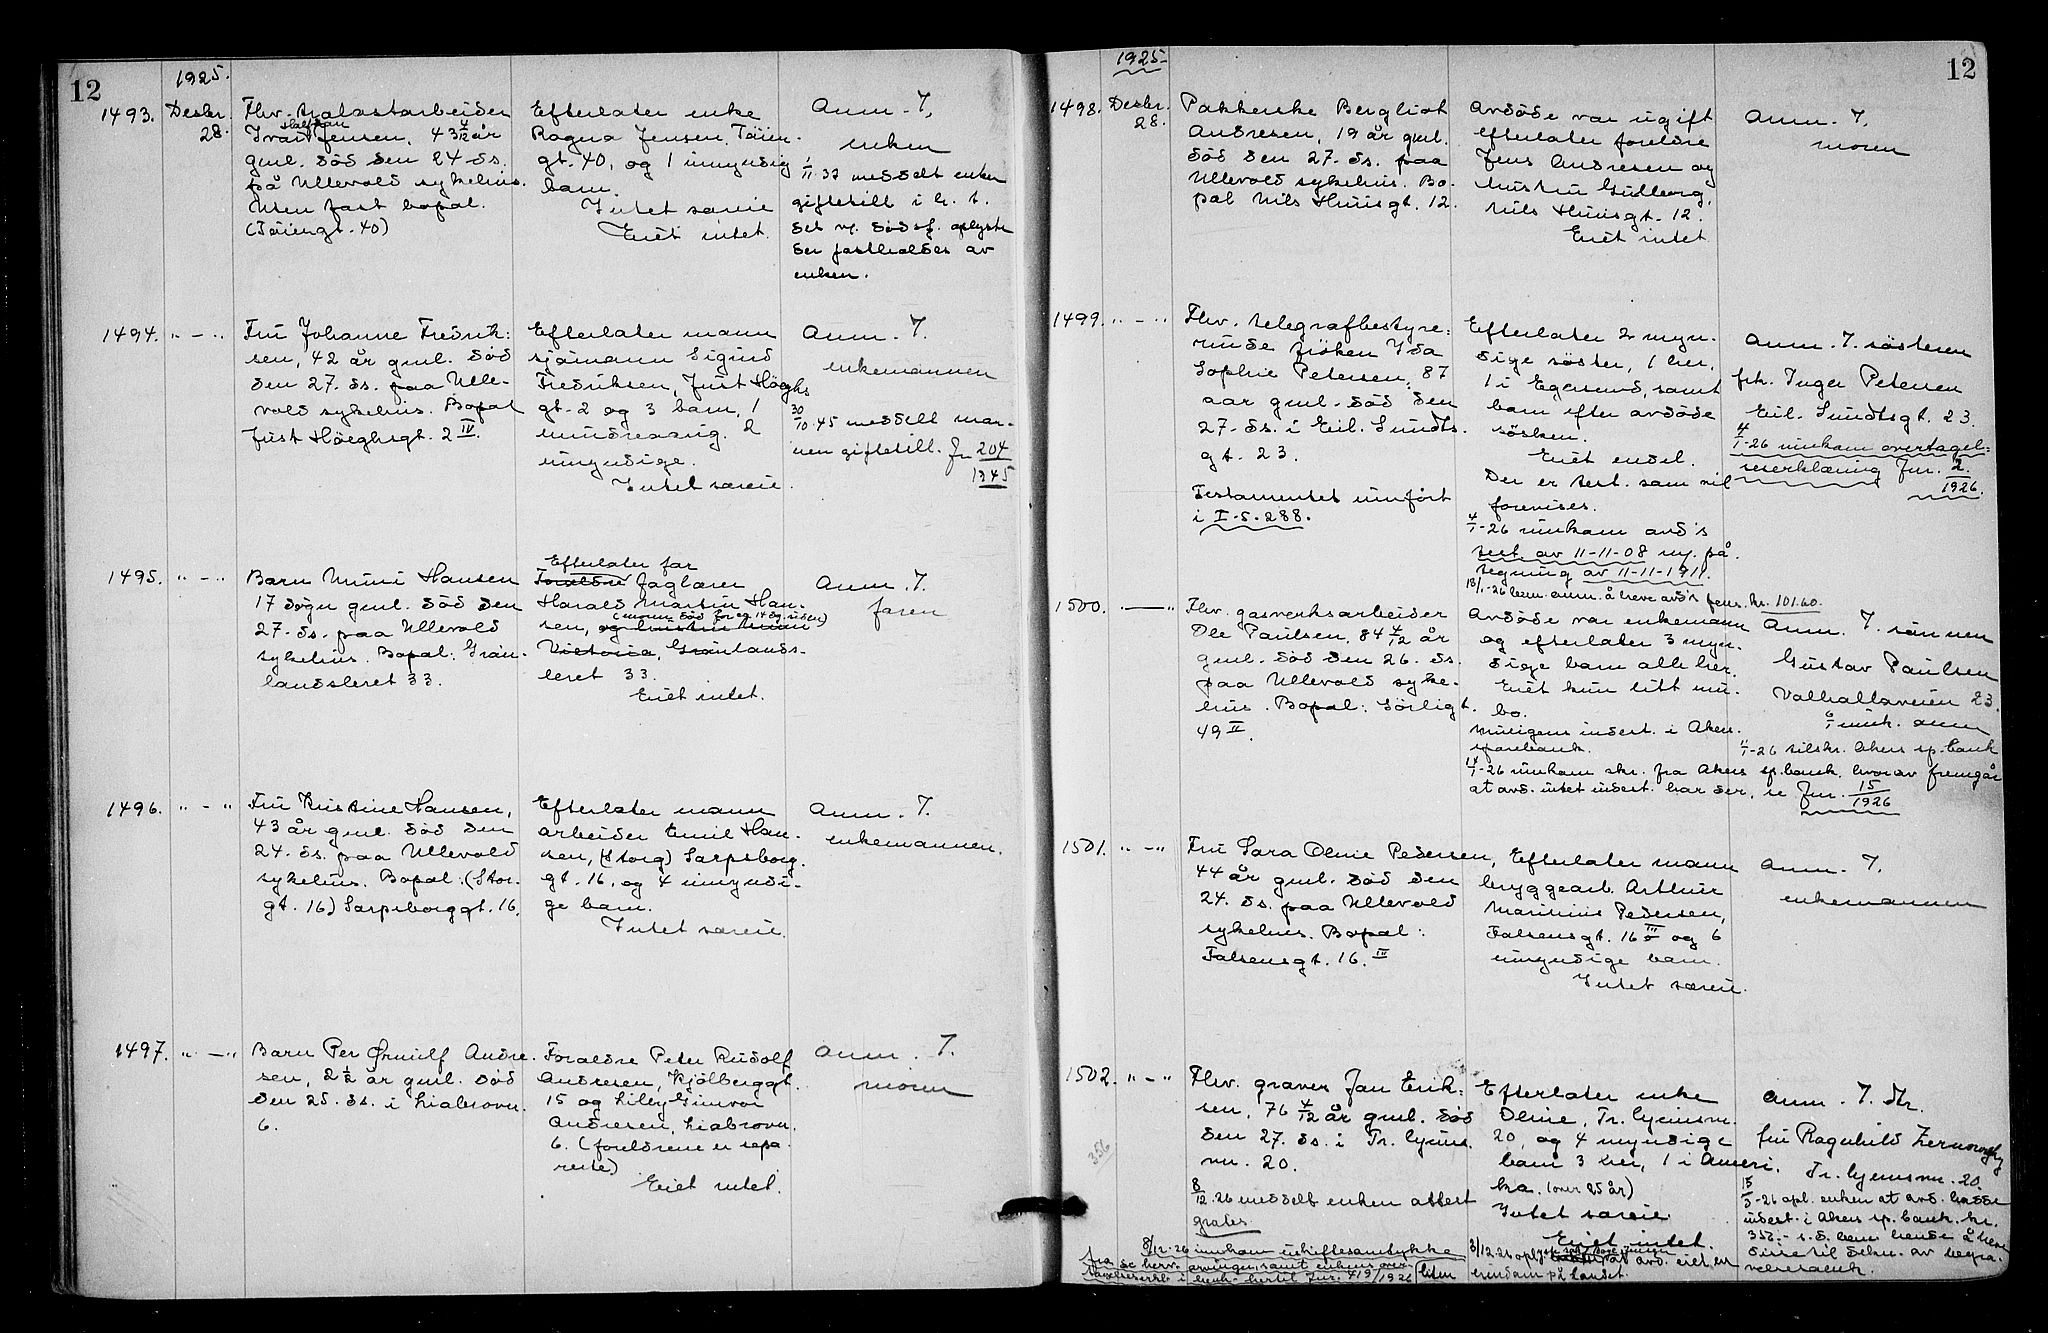 12
1925.
1493. Desbr. 28.
Fhv. ballastarbeider
Halfdan
Ivar Jensen, 43 4/12 år
gml. död den 24 ds.
på Ullevold sykehus.
Uten fast bopæl.
(Töiengt. 40)
Efterlater enke
Ragna Jensen, Töien-
gt. 40, og 1 umyndig
barn.
Intet særeie
Eiet intet.
Anm. T.
enken
1/11.37 meddelt enken
giftetill i h. t.
det v. dödsf. oplyste
der fastholdes av
enken.
1494. " - "
Fru Johanne Fredrik-
sen, 42 år gml. död
den 27. ds. paa Ulle-
vold sykehus. Bopæl
Just Höeghsgt. 2 IV.
Efterlater mann
sjömann Sigurd
Fredriksen, Just Höeghs
gt. 2 og 3 barn, 1
mindreaarig. 2
umyndige.
Intet særeie.
Anm. T.
enkemannen
30/10.45 meddelt man-
nen giftetill. Jn 204/1945
1495. " - "
Barn Unni Hansen
17 dögn gml. död den
27. ds. paa Ullevold
sykehus. Bopæl: Grön-
landsleret 33.
Efterlater far
Forældre faglærer
Harald Martin Han-
(moren död for ca 14 dg. siden)
sen, og hustru
Victoria, Grönlands-
leret 33.
Eiet intet.
Anm. T.
faren
1496. " - "
Fru Kristine Hansen,
43 år gml. död den
24. ds. paa Ullevold
sykehus. Bopæl: (Stor-
gt. 16) Sarpsborggt. 16.
Efterlater mann
arbeider Emil Han-
sen, (Storg) Sarpsborg.
gt. 16, og 4 umyndi-
ge barn.
Intet særeie.
Anm. T.
enkemannen.
1497. " - "
Barn Per Ørnulf Andre-
sen, 2 1/2 år gml. död
den 25. ds. i Liabrovn.
6.
Foreldre Peter Rudolf
Andresen, Kjölberggt.
15 og Lilly Gunvor
Andresen, Liabrovn.
6. (foreldrene er sepa-
rerte)
Eiet intet.
Anm. T.
moren
1925
12
1498. Desbr. 28.
Pakkerske Bergliot
Andresen, 19 år gml.
död den 27. ds. paa
Ullevold sykehus. Bo-
pæl Nils Huusgt. 12.
Avdöde var ugift
efterlater foreldre
Jens Andresen og
hustru Gudborg,
Nils Huusgt. 12.
Eiet intet.
Anm. T.
moren
1499. " - "
Fhv. telegrafbestyre-
rinde fröken Ida
Sophie Petersen, 87
aar gml. död den
27. ds. i Eil. Sundts.
gt. 23.
Testamentet innfört
i I. S. 288.
Efterlater 2 myn-
dige söstre, 1 her,
1 i Egersund, samt
barn efter avdöde
sösken.
Eiet endel.
Der er test. som vil
forevises.
4/1-26 innkom avd's
test. av 11-11-08 m. på-
tegning av 11-11-1911.
13/1-26 bem. anm. å heve avd's pens. kr. 101.60.
Anm. T. søsteren
frk. Inger Petersen
Eil. Sundtsgt. 23.
4/1-26 innkom overtagel-
seserklæring Jnr. 2/1926.
1500. " - "
Fhv. gasverksarbeider
Ole Paulsen, 84 4/12 år
gml. död den 26. ds.
paa Ullevold syke-
hus. Bopæl: Sörligt.
49 II.
Avdöde var enkemann
og efterlater 3 myn-
dige barn alle her.
Eiet kun litt inn-
bo.
Muligens indest. i Akers
sparebank.
14/1-26 innkom skr. fra Akers sp.bank, hvorav fremgår
at avd. intet indest. har der, se Jnr. 15/1926
Anm. T. sönnen
Gustav Paulsen
Valhallaveien 23.
6/1 innk. anm
4/1-26 tilskr. Akers sp. bank
1501. " - "
Fru Sara Oline Pedersen,
44 år gml. död den
24. ds. paa Ullevold
sykehus. Bopæl:
Falsensgt. 16. III
Efterlater mann
bryggearb. Arthur
Marinius Pedersen,
Falsensgt. 16 III og 6
umyndige barn.
Intet særeie.
Anm. T.
enkemannen
1502. " - "
356
Fhv. graver Jan Erik-
sen, 76 4/12 år gml. död
den 27. ds. i Tr. hjems-
vn. 20.
8/12.26 meddelt enken attest
gratis.
8/12-26 innkom uskiftesamtykke
fra de herv. arvinger, samt enkens over
tagelseserkl. i henh. hertil Jnr. 419/1926
Efterlater enke
Oline, Tr. hjemsvn.
20, og 4 myndige
barn 3 her, 1 i Ameri-
ka. (over 25 år)
Intet særeie.
Eiet intet.
3/12.26 oplyst at avd. eiet en
liten eiendom på landet.
Anm. T. dtr.
fru Ragnhild Zernowsky
Tr. hjemsvn. 20.
15/3-26 opl. enken at avd. hadde
indest. i Akers sp. bank kr.
352.- s.d. bem. hende å heve
disse til dekn. av begra-
velsesomk.